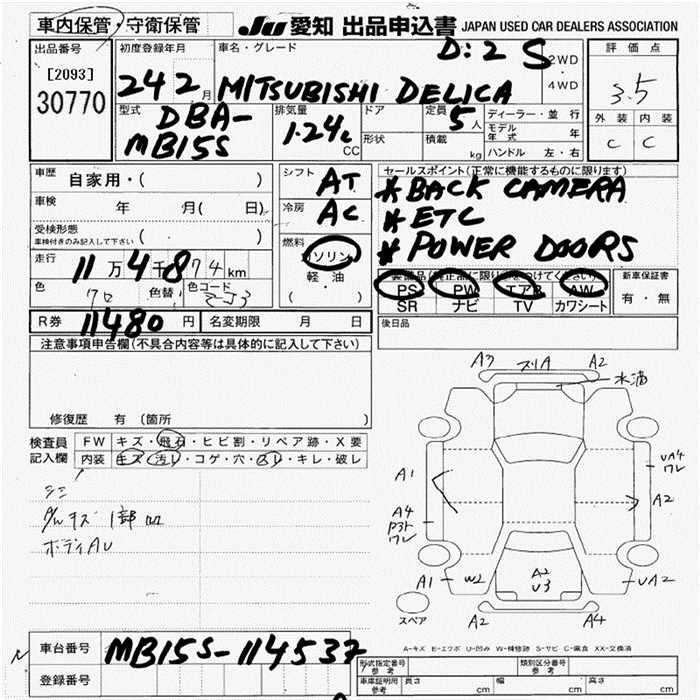 車内保管・守衛保管 JU 愛知 出品申込書 JAPAN USED CAR DEALERS ASSOCIATION
出品番号 初度登録年月 車名・グレード 評価点
[2093] D:2 S 2WD・4WD
30770 242月 MITSUBISHI DELICA 3.5
型式 排気量 ドア 定員 ディーラー・並行 外装 内装
DBA-MB15S 1.24L CC 形状 5人 積載 kg モデル年式 年 C C
ハンドル 左・右
車歴 自家用・( ) シフト AT セールスポイント(正常に機能するものに限ります)
車検 年 月( 日) 冷房 AC * BACK CAMERA
受検形態 * ETC
車検付きのみ記入して下さい ( ) 燃料 * POWER DOORS
走行 11万4千874km ガソリン
軽・油
( )
色 クロ 色替 色コード ZJ3
装備品(純正品に限り○をつけてください) 新車保証書
PS PW エアB AW 有・無
SR ナビ TV カワシート
R券 11480円 名変期限 月 日 後日品
注意事項申告欄(不具合内容等は具体的に記入して下さい)
修復歴 有 (箇所 )
検査員 FW キズ・飛石・ヒビ割・リペア跡・X要
記入欄 内装 キズ・汚レ・コゲ・穴・スレ・キレ・破レ
シミ
キズ 1部凹
ボディAU
A3 スリA A2
水滴
A1 UA4 ワレ
A4 A2
ワレ
A1 W2 A2 U3 UA2
スペア A2 A4
A-キズ E-エクボ U-凹み W-補修跡 S-サビ C-腐食 XX-交換済
車台番号 MB15S-114537
登録番号
形式指定番号 参考 類別区分番号 参考
車庫証明用 参考 長さ cm 幅 cm 高さ cm